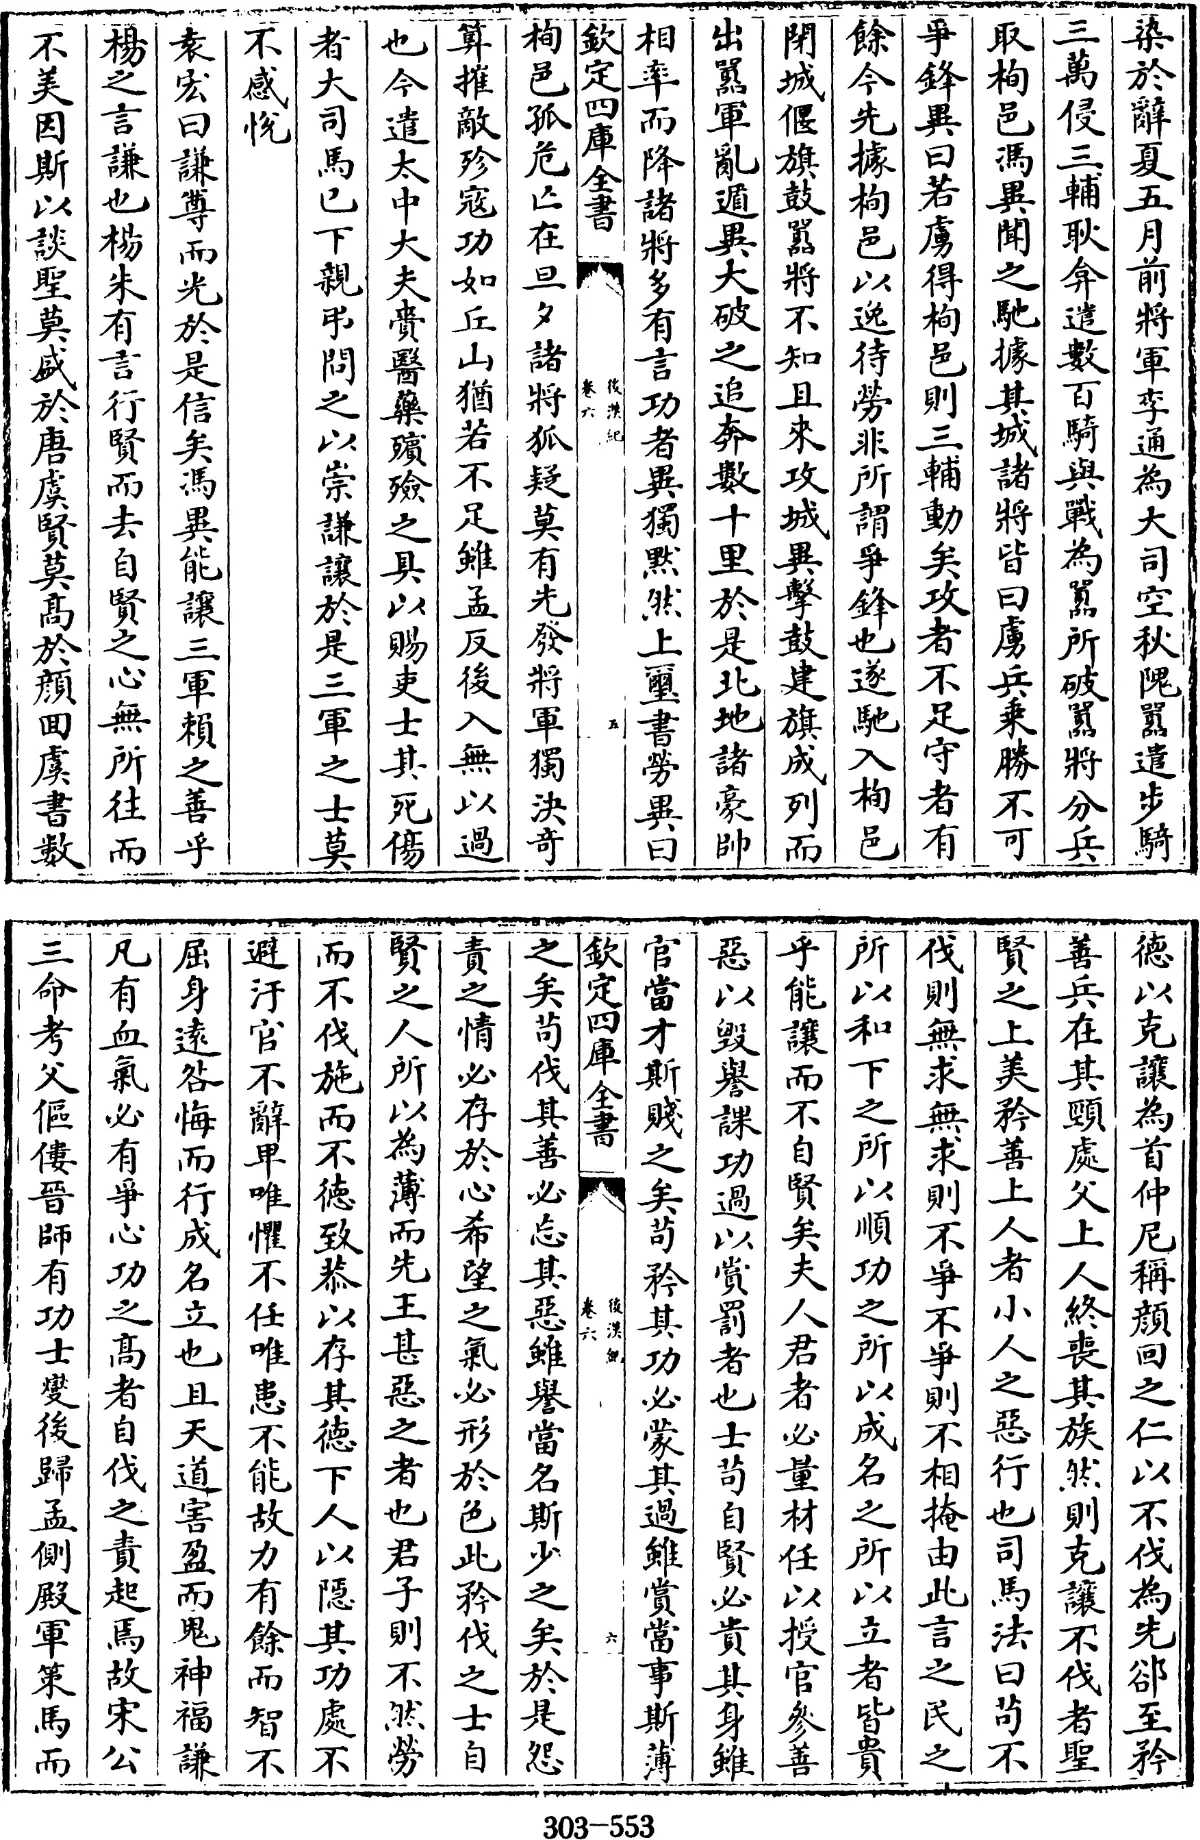 染於辭夏五月前將軍李通為大司空秋隗囂遣步騎
三萬侵三輔耿弇遣數百騎與戰為囂所破囂將分兵
取栒邑馮異聞之馳據其城諸將皆曰虜兵乘勝不可
爭鋒異曰若虜得栒邑則三輔動矣攻者不足守者有
餘今先據栒邑以逸待勞非所謂爭鋒也遂馳入栒邑
閉城偃旗鼓囂將不知且來攻城異擊鼓建旗成列而
出囂軍亂遁異大破之追奔數十里於是北地諸豪帥
相率而降諸將多有言功者異獨黙然上璽書勞異曰
欽定四庫全書
後漢紀
卷六
五
栒邑孤危亡在旦夕諸將狐疑莫有先發將軍獨決奇
算摧敵殄寇功如丘山猶若不足雖孟反後入無以過
也今遣太中大夫賚醫藥殯殮之具以賜吏士其死傷
者大司馬已下親弔問之以崇謙讓於是三軍之士莫
不感悅
袁宏曰謙尊而光於是信矣馮異能讓三軍賴之善乎
楊之言謙也楊朱有言行賢而去自賢之心無所往而
不美因斯以談聖莫盛於唐虞賢莫高於顏回虞書數
德以克讓為首仲尼稱顏回之仁以不伐為先郤至矜
善兵在其頸處父上人終喪其族然則克讓不伐者聖
賢之上美矜善上人者小人之惡行也司馬法曰苟不
伐則無求無求則不爭不爭則不相掩由此言之民之
所以和下之所以順功之所以成名之所以立者皆貴
乎能讓而不自賢矣夫人君者必量材任以授官參善
惡以毀譽課功過以賞罰者也士苟自賢必貴其身雖
官當才斯賤之矣苟矜其功必蒙其過雖賞當事斯薄
欽定四庫全書
後漢紀
卷六
六
之矣苟伐其善必忘其惡雖譽當名斯少之矣於是怨
責之情必存於心希望之氣必形於色此矜伐之士自
賢之人所以為薄而先王甚惡之者也君子則不然勞
而不伐施而不德致恭以存其德下人以隱其功處不
避汙官不辭卑唯懼不任唯患不能故力有餘而智不
屈身遠咎悔而行成名立也且天道害盈而鬼神福謙
凡有血氣必有爭心功之高者自伐之責起焉故宋公
三命考父傴僂晉師有功士燮後歸孟側殿軍策馬而
303-553